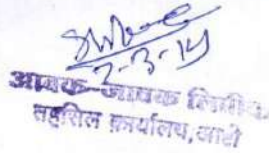 2-3-19
आवक-जावक लिपीक,
तहसिल कार्यालय,